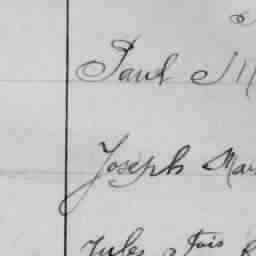 Paul M
Joseph Mar
Jules Fois